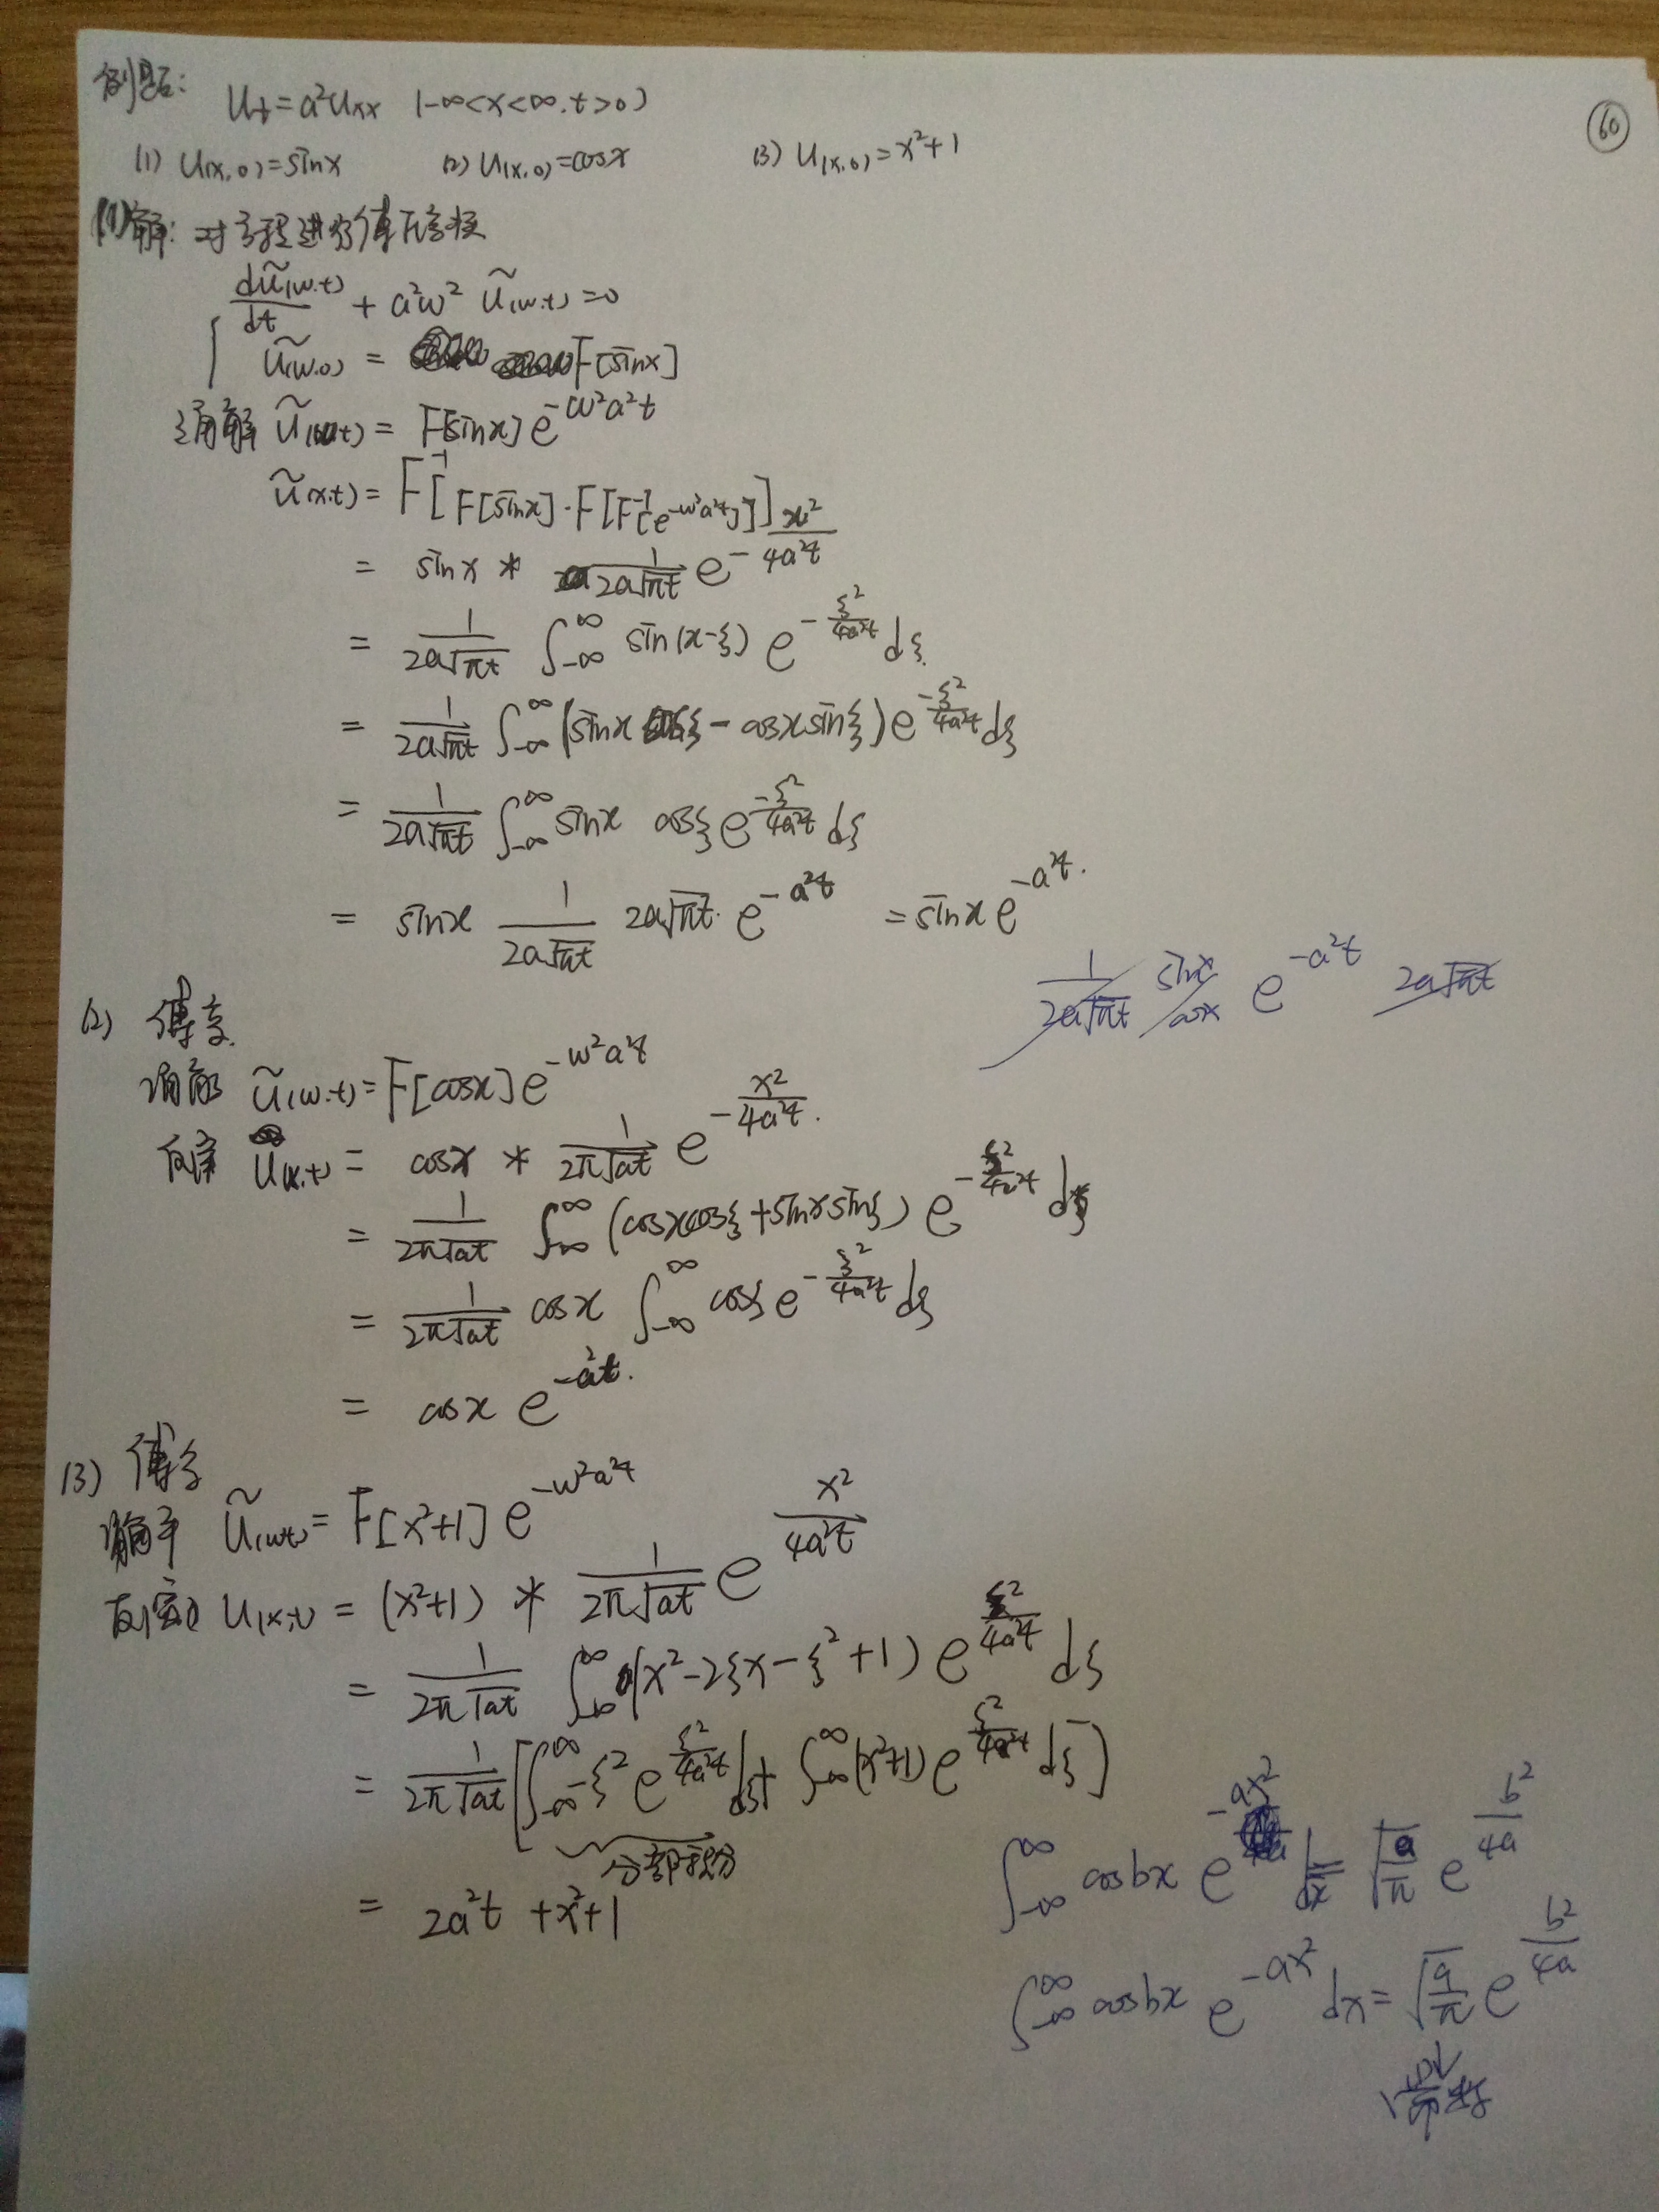 例题: Ut=a²Uxx (-∞<x<∞.t>0)
60
(1) U(x,0)=sinx (2) U(x,0)=cosx (3) U(x,0)=x²+1
(1)解: 对方程进行傅氏变换
dũ(w.t)/dt + a²w² ũ(w.t)=0
ũ(w.0) = F[sinx]
通解 ũ(w.t) = F[sinx] e^{-w²a²t}
ũ(x.t) = F⁻¹[F[sinx]·F[F⁻¹[e^{-w²a²t}]]]
= sinx * 1/(2a√πt) e^{-x²/4a²t}
= 1/(2a√πt) ∫_{-∞}^{∞} sin(x-ξ) e^{-ξ²/4a²t} dξ
= 1/(2a√πt) ∫_{-∞}^{∞} (sinx cosξ - cosx sinξ) e^{-ξ²/4a²t} dξ
= 1/(2a√πt) ∫_{-∞}^{∞} sinx cosξ e^{-ξ²/4a²t} dξ
= sinx 1/(2a√πt) 2a√πt· e^{-a²t} = sinx e^{-a²t}.
1/(2a√πt) sinx/cosx e^{-a²t} 2a√πt
(2) 傅变.
通解 ũ(w.t)=F[cosx] e^{-w²a²t}
U(x,t) = cosx * 1/(2π√at) e^{-x²/4a²t}.
= 1/(2π√at) ∫_{-∞}^{∞} (cosxcosξ+sinxsinξ) e^{-ξ²/4a²t} dξ
= 1/(2π√at) cosx ∫_{-∞}^{∞} cosξ e^{-ξ²/4a²t} dξ
= cosx e^{-a²t}.
(3) 傅变
通解 ũ(w.t)= F[x²+1] e^{-w²a²t}
U(x,t) = (x²+1) * 1/(2π√at) e^{x²/4a²t}
= 1/(2π√at) ∫_{-∞}^{∞} (x²-2ξx-ξ²+1) e^{ξ²/4a²t} dξ
= 1/(2π√at) [∫_{-∞}^{∞} -ξ² e^{ξ²/4a²t} dξ + ∫_{-∞}^{∞} (x²+1) e^{ξ²/4a²t} dξ]
分部积分
= 2a²t + x²+1
∫_{-∞}^{∞} cosbx e^{-ax²} dx = √(a/π) e^{b²/4a}
∫_{-∞}^{∞} cosbx e^{-ax²} dx = √(a/π) e^{b²/4a}